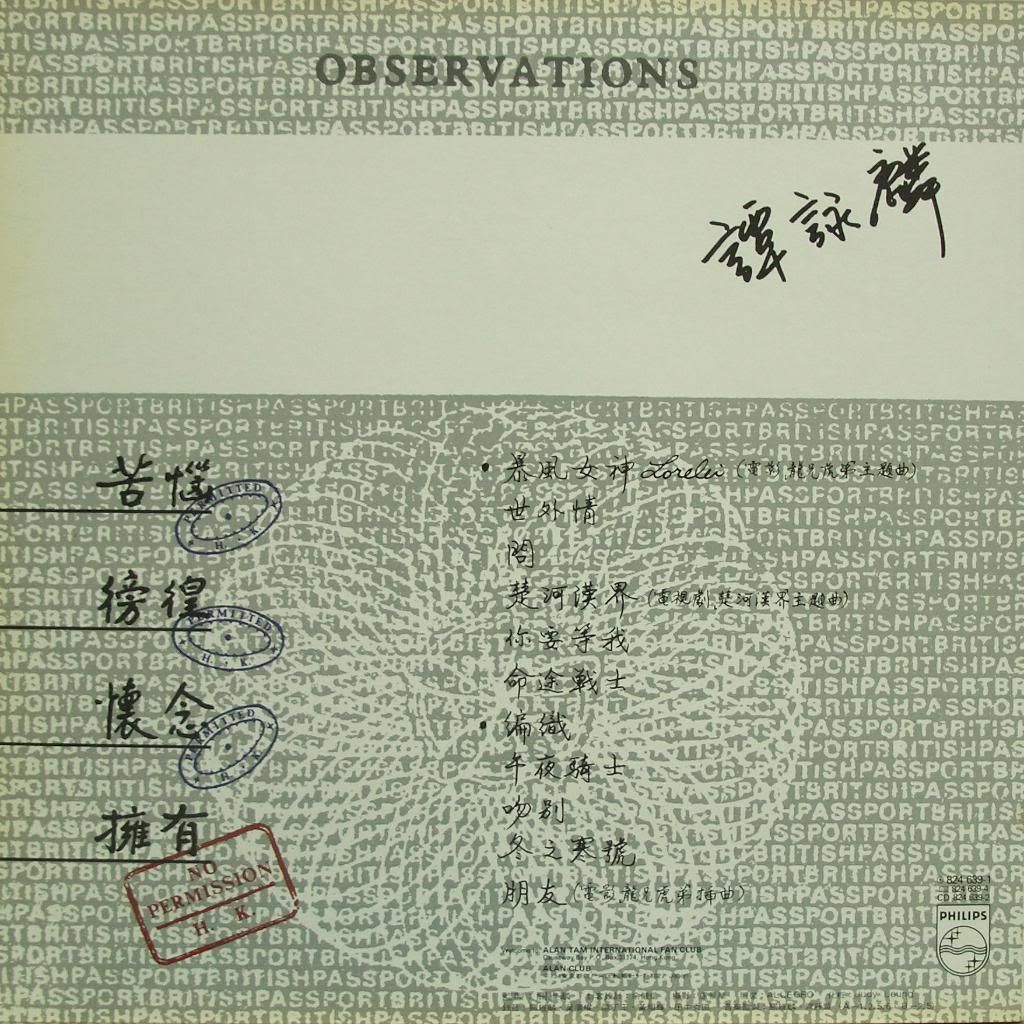 OBSERVATIONS
譚詠麟
苦惱
PERMITTED H. K.
徬徨
PERMITTED H. K.
懷念
PERMITTED H. K.
擁有
NO
PERMISSION
H. K.
• 暴風女神 Lorelei (電影龍兄虎弟主題曲)
世外情
問
楚河漢界 (電視劇楚河漢界主題曲)
你要等我
命途戰士
• 編織
午夜騎士
吻別
冬之寒號
朋友 (電影龍兄虎弟插曲)
824 639-1
824 639-4
CD 824 639-2
PHILIPS
ALAN TAM INTERNATIONAL FAN CLUB
Causeway Bay P.O. Box 31374, Hong Kong.
ALAN CLUB